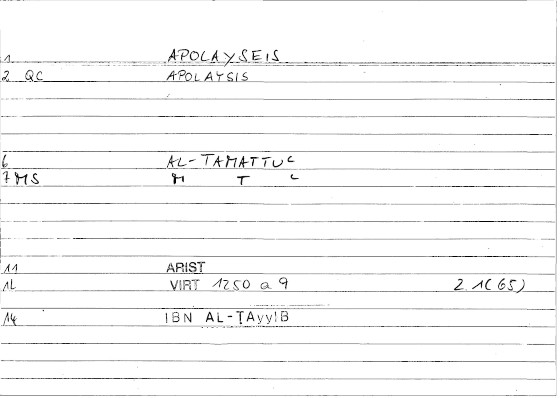 1 APOLAYSEIS
2 QC APOLAYSIS
6 AL-TAMATTUC
7 MS M T C
11 ARIST
12 VIRT 1250 a 9 2.1(65)
14 IBN AL-ṬAyyIB